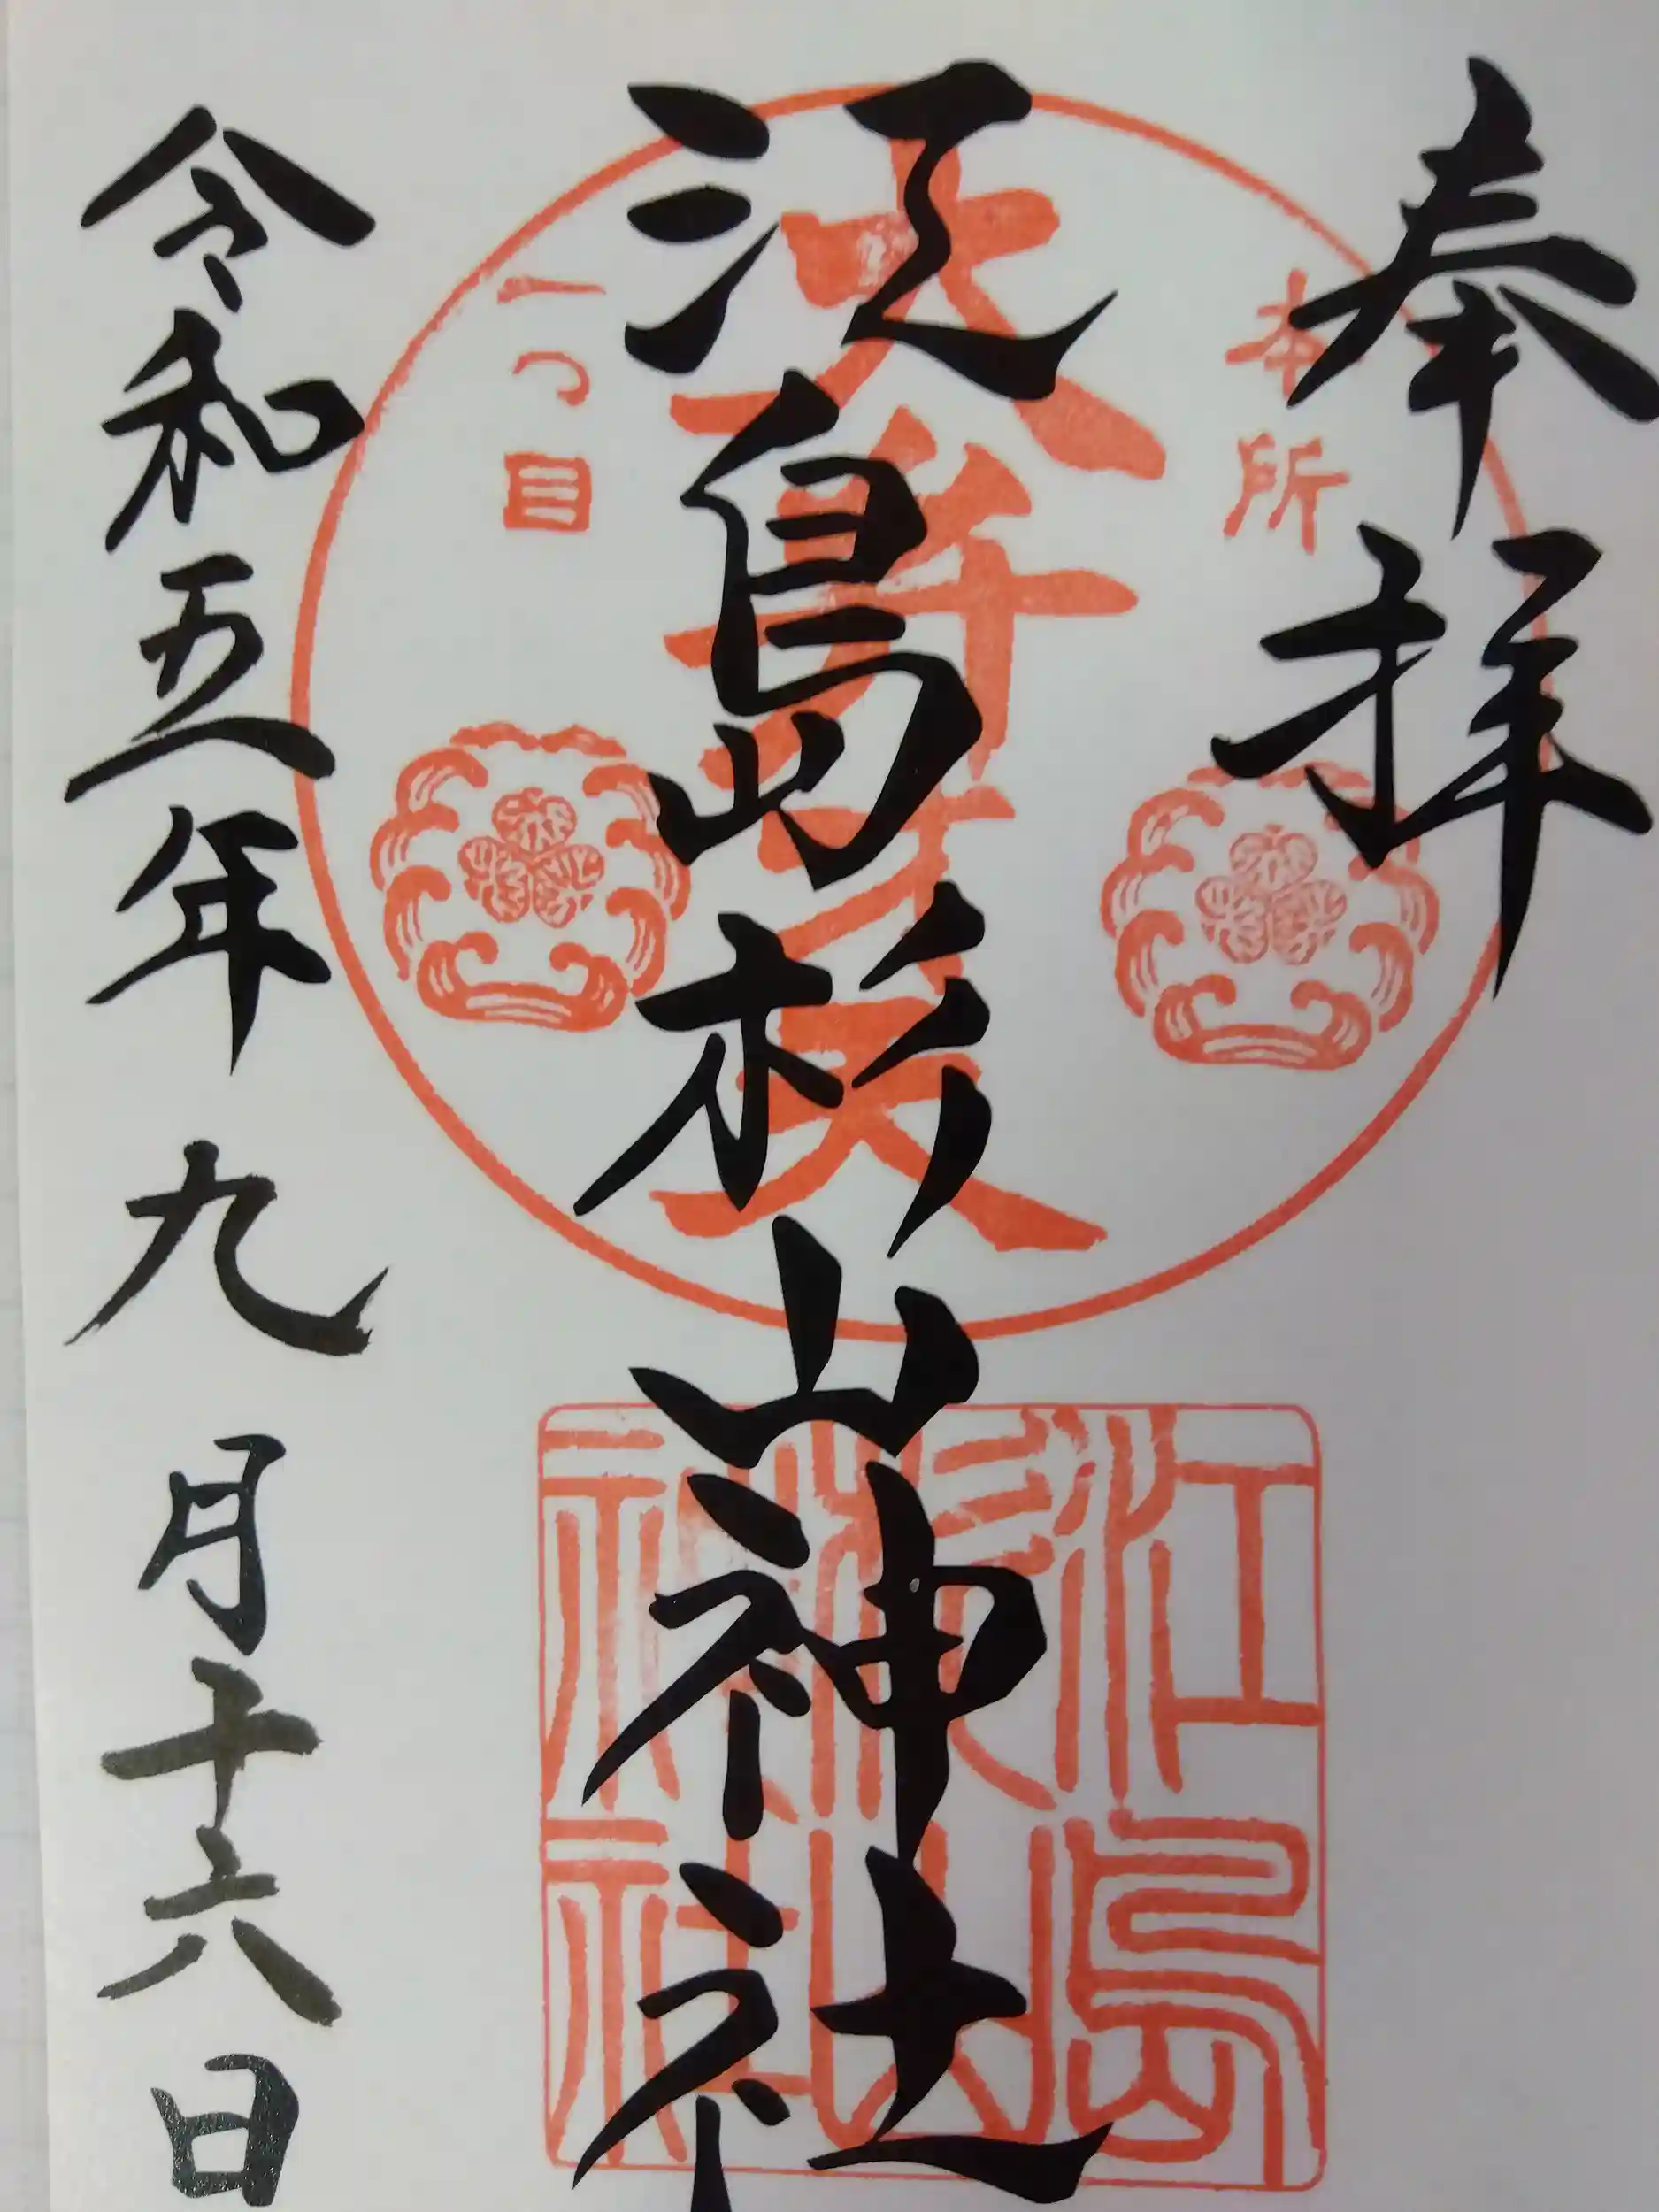 奉拝
本所
天弁才天
一つ目
江島杉山神社
江島
杉山
神社
令和五年九月十六日